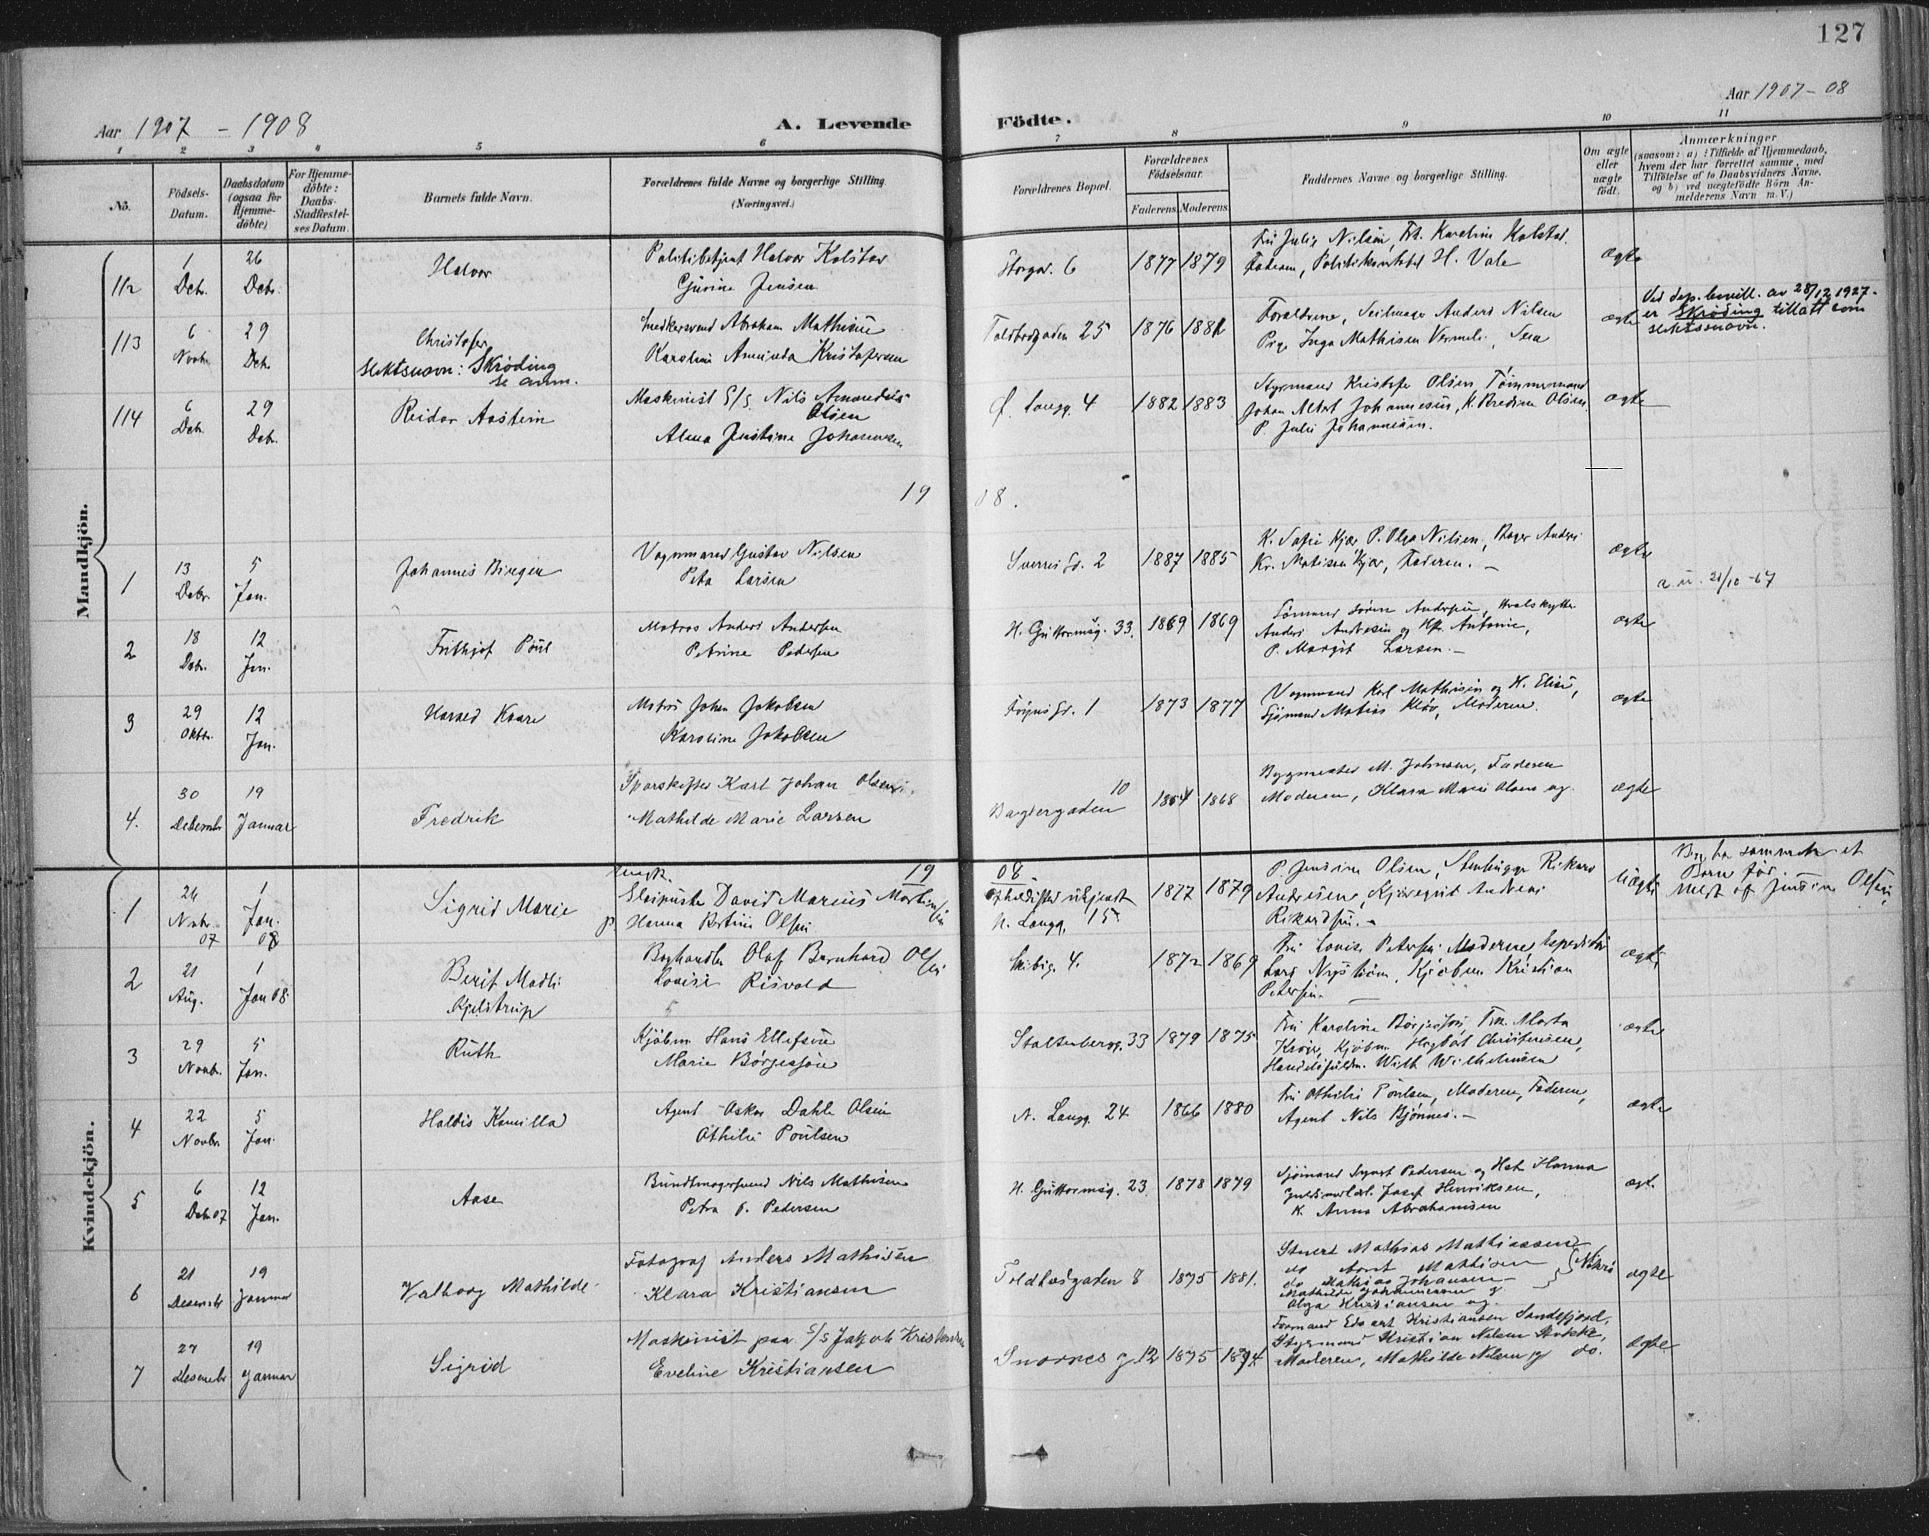 127
Aar 1907 - 1908
A. Levende Födte.
Aar 1907-08
1 2 3 4 5 6 7 8 9 10 11
No.
Födsels-Datum.
Daabsdatum (ogsaa for Hjemmedöbte)
For Hjemmedöbte: Daabs-Stadfæstelses Datum.
Barnets fulde Navn.
Forældrenes fulde Navne og borgerlige Stilling.
(Næringsvei.)
Forældrenes Bopæl.
Forældrenes Födselsaar.
Faderens. Moderens.
Faddernes Navne og borgerlige Stilling.
Om ægte eller uægte födt.
Anmærkninger
(saasom: a) i Tilfælde af Hjemmedaab,
hvem der har forrettet samme, med
Tilföielse af to Daabsvidners Navne,
og b) ved uægtefödte Börn Anmelderens Navn m. V.)
Mandkjön.
112 1 Dcbr. 26 Dcbr. Halvor
Politibetjent Halvor Kolstad
Gurine Jensen
Storgd. 6 1877 1879
Fru Julie Nilsen, Frk. Karoline Kolstad.
Faderen, Politikonstabel H. Vale
ægte
113 6 Novbr. 29 Dcb. Christofer
slektsnavn: Skrøding
se anm.
Snedkersvend Abraham Mathisen
Karoline Aminda Kristofersen
Toldbodgaden 25 1876 1882
Forældrene, Seilmager Anders Nilsen
Pige Inga Mathisen Vermeli, Sem
ægte
Ved dep. bevill. av 28/12 1927
er Skrøding tillatt som
slektsnavn.
114 6 Dcbr. 29 Dcbr. Reidar Aastein
Maskinist S/S. Nils Amandus
Olsen
Alma Justine Johannesen
Ø. Langg. 4 1882 1883
Styrmand Kristofer Olsen Tømmermand
Johan Albert Johannesen, K. Bredine Olsen
P. Julie Johannesen.
ægte
19 08.
1 13 Dcbr. 5 Jan. Johannes Birger
Vognmand Gustav Nilsen
Petra Larsen
Sverresgd. 2 1887 1885
K. Sofie Kjær P. Olga Nilsen, Bager Anders
Kr. Matisen Kjær, Faderen. -
ægte
a.u. 21/10-67
2 18 Dcbr. 12 Jan. Frithjof Poul
Matros Anders Andersen
Petrine Pedersen
H. Guttormsg. 33. 1869 1869
Sømand Søren Andersen, Hvalskytter
Anders Andersen og Htr. Antonie,
P. Margit Larsen. -
ægte
3 29 Oktbr. 12 Jan. Harald Kaare
Matros Johan Jakobsen
Karoline Jakobsen
Foynsgd. 1 1873 1877
Vognmand Karl Mathisen og H. Elise,
Sjømand Matias Kløv, Moderen.
ægte
4. 30 Debembr 19 Januar Fredrik
Sparskifter Karl Johan Olsen
Mathilde Marie Larsen
Baglergaden 10 1864 1868
Bygmester M. Johnsen, Faderen
Moderen, Klara Marie Olsen og.
ægte
Kvindekjön.
19 08
1 26 Novbr. 07 1 Jan. 08 Sigrid Marie
David Marius Martinsen
P. Hanna Bertine Olsen
Opholdssted ukjendt
N. Langg. 15 1877 1879
P. Jensine Olsen, Stenhugger Rikard
Andresen, Kjøregut Andreas
Rikardsen. -
Uægte
Børn før.
2 21 Aug. 1 Jan 08 Berit Madli
Kjelstrup
Boghandler Olaf Bernhard Olsen
Lovise Risvold
Skibsg. 4. 1872 1869
Fru Lovise Petersen. Moderen, Expeditør
Lars Nystrøm, Kjøbm Kristian
Petersen. -
ægte
3 29 Novbr. 5 Jan. Ruth
Kjøbm Hans Ellefsen
Marie Børgesson
Stoltenbergg. 33 1879 1875
Fru Karoline Børgesson, Frk. Marta
Krøger, Kjøbm. Hagbart Christensen,
Handelsfuldm. With Wilhelmsen
ægte
4 22 Novbr 5 Jan. Haldis Kamilla
Agent Oskar Dahle Olsen
Othilie Poulsen
N. Langg. 24 1866 1880
Fru Othilie Poulsen, Moderen, Faderen,
Agent Nils Bjønnes. -
ægte
5 6 Dcbr 07 12 Jan. Aase
Bundtmagersvend Nils Mathisen
Petra O. Pedersen
H. Guttormsg. 23. 1878 1879
Sjømand Pedersen og Hst. Hanna
Josef Henriksen,
K. Anna Abrahamsen
ægt.
6 21 Desembr 19 Januar Valborg Mathilde
Fotograf Anders Mathisen
Klara Kristiansen
Toldbodgaden 8 1875 1881.
Stuert Mathias Mathiassen
do Arnt Mathisen
do Mathias Johansen
Mathilde Johannessen og
Olga Kristiansen og.
ægte
7 27 Desembr 19 Januar Sigrid
Maskinist paa S/S Jakob Kristensen
Eveline Kristiansen
Snarnes g. 12 1875 1874
Formand Edvart Kristiansen Sandefjord,
Styrmand Kristian Nilsen Stokke,
Moderen, Mathilde Nilsen og do.
ægte